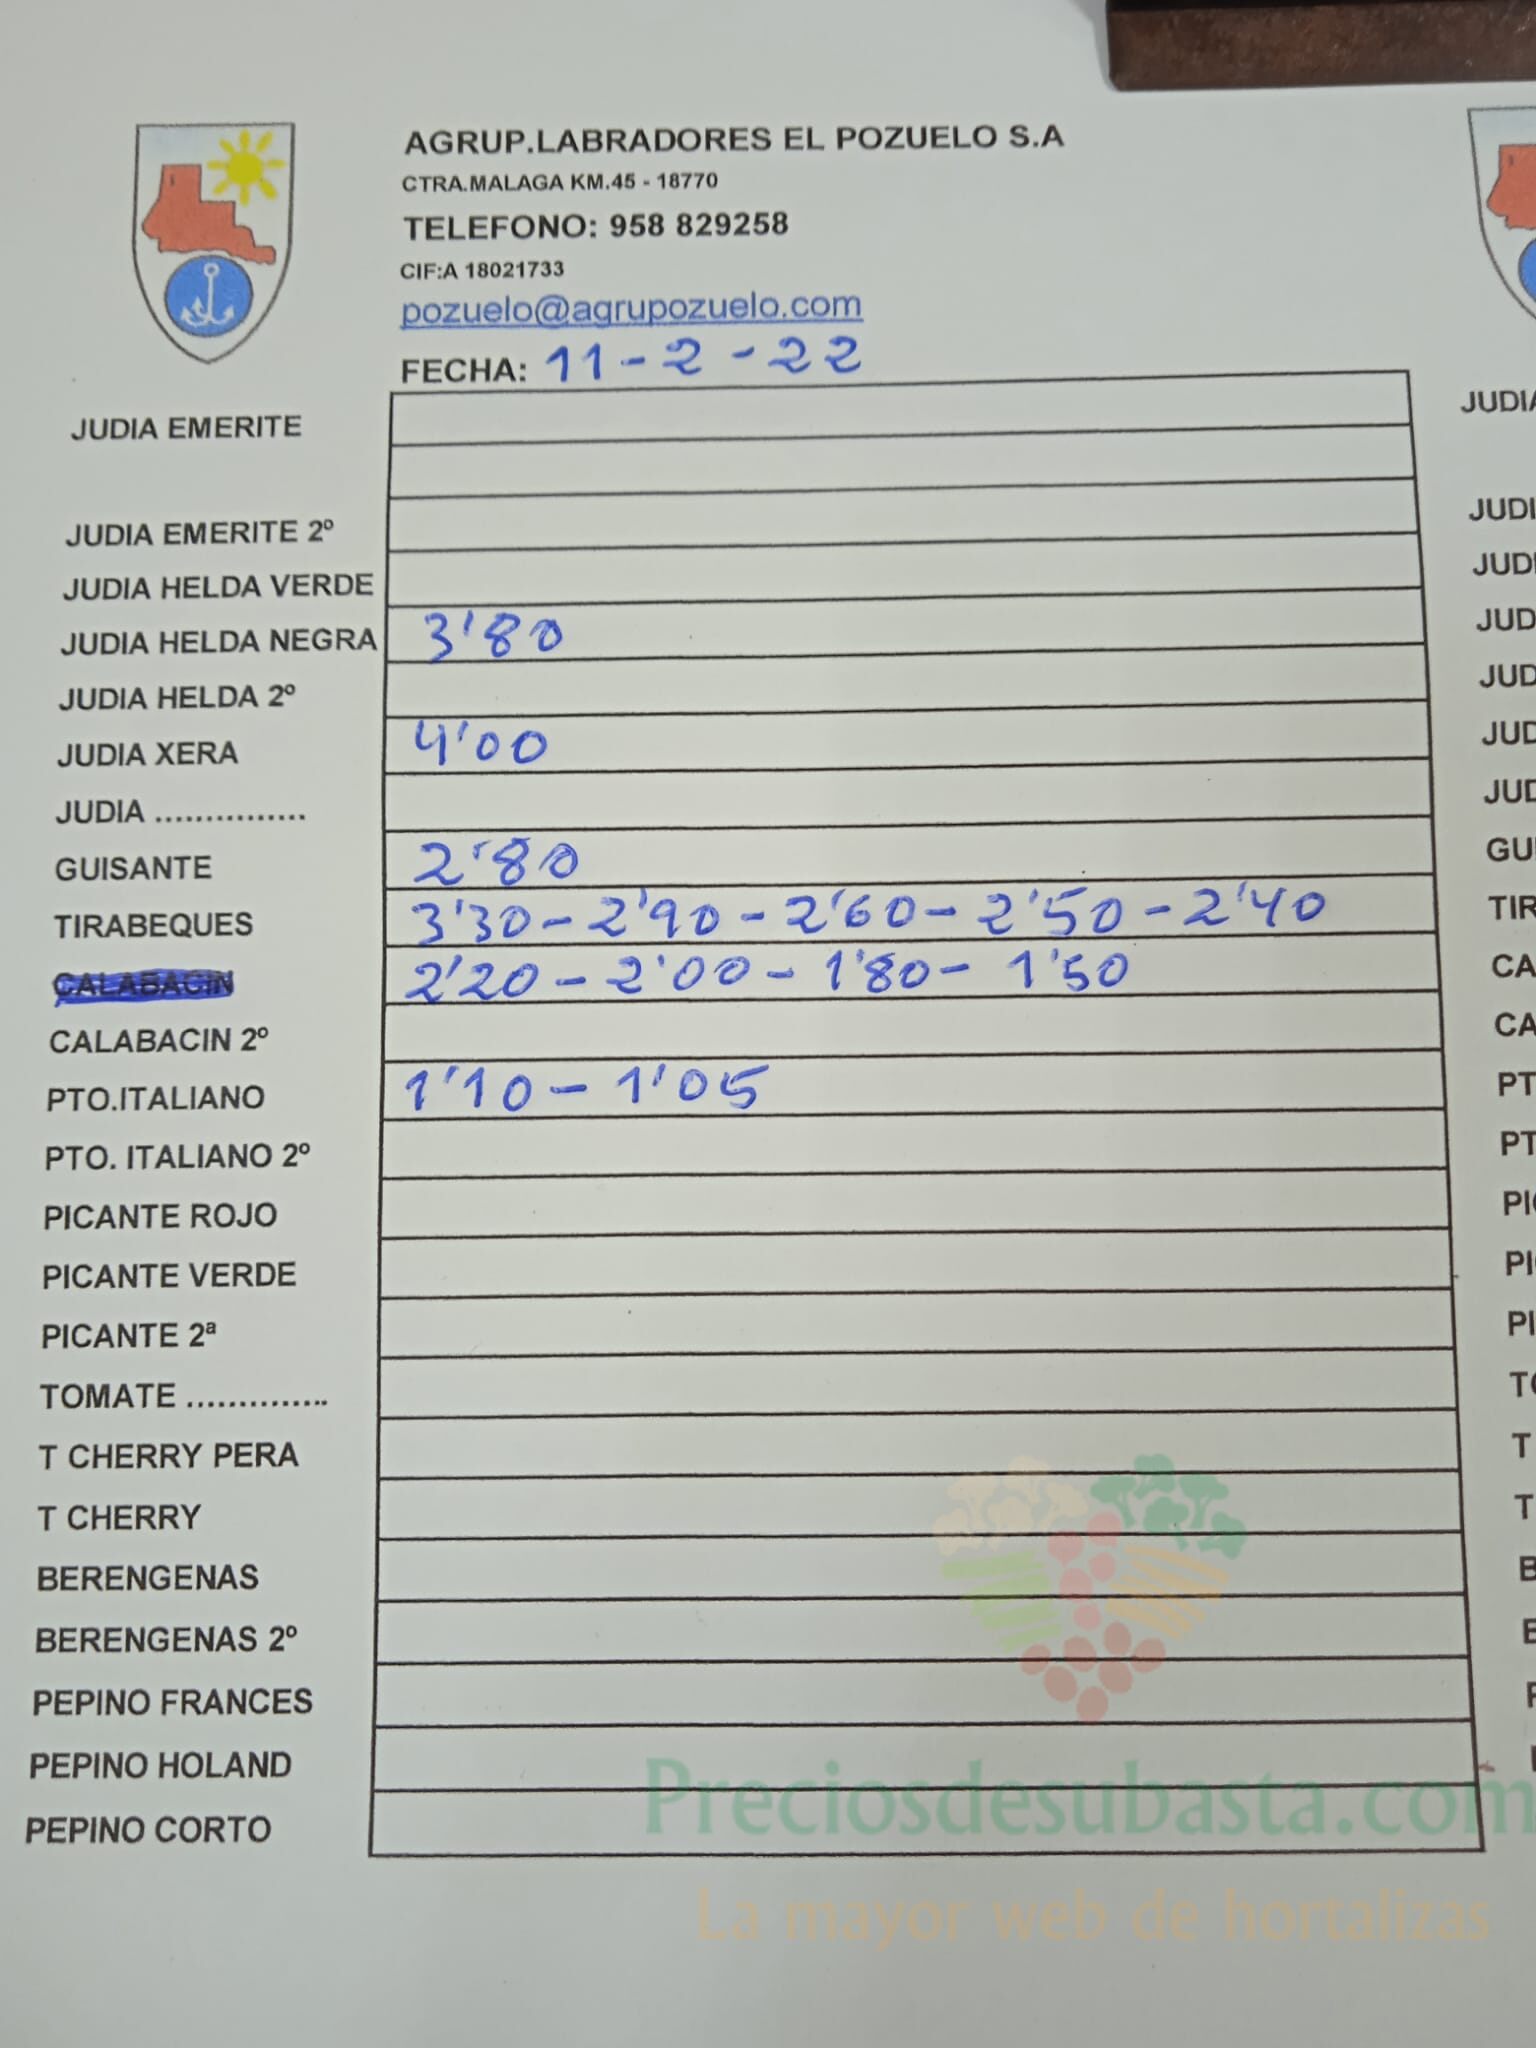 AGRUP.LABRADORES EL POZUELO S.A
CTRA.MALAGA KM.45 - 18770
TELEFONO: 958 829258
CIF:A 18021733
pozuelo@agrupozuelo.com
FECHA: 11-2-22
JUDIA EMERITE
JUDIA EMERITE 2º
JUDIA HELDA VERDE
JUDIA HELDA NEGRA 3'80
JUDIA HELDA 2º
JUDIA XERA 4'00
JUDIA ...............
GUISANTE 2'80
TIRABEQUES 3'30-2'90-2'60-2'50-2'40
CALABACIN 2'20-2'00-1'80-1'50
CALABACIN 2º
PTO.ITALIANO 1'10-1'05
PTO. ITALIANO 2º
PICANTE ROJO
PICANTE VERDE
PICANTE 2ª
TOMATE ..............
T CHERRY PERA
T CHERRY
BERENGENAS
BERENGENAS 2º
PEPINO FRANCES
PEPINO HOLAND
PEPINO CORTO
Preciosdesubasta.com
La mayor web de hortalizas
JUDIA
JUDI
JUDI
JUD
JUD
JUD
JUD
GUI
TIR
CA
CA
PT
PT
PI
PI
PI
TO
T
T
B